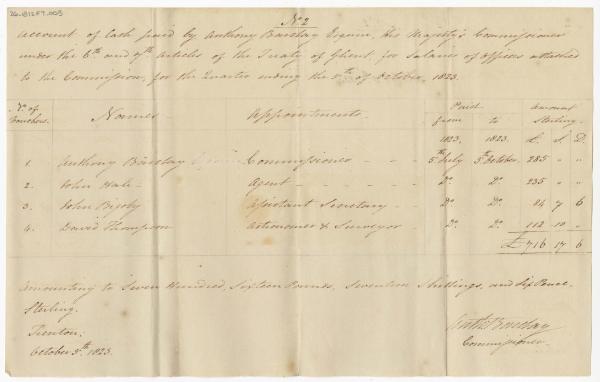 26-B12F7.003
No 2
Account of Cash paid by Anthony Barclay Esquire, His Majesty's Commissioner
under the 6th and 7th articles of the Treaty of Ghent, for Salaries of Officers attached
to the Commission, for the Quarter ending the 5th of October, 1823.
No of Vouchers. Names Appointments Paid from to Amount Sterling.
1823. 1823. £. S. D.
1. Anthony Barclay Esquire Commissioner - - - 5th July 5th October 285 " "
2. John Hale - Agent - - - - - Do. Do. 235 " "
3. John Bigsby Assistant Secretary - - Do. Do. 84 7 6
4. David Thompson Astronomer & Surveyor - Do. Do. 112 10 "
£ 716 17 6
Amounting to Seven Hundred, Sixteen Pounds, Seventeen Shillings, and Six Pence.
Sterling.
Trenton;
October 5th. 1823.
Anth: Barclay
Commissioner.